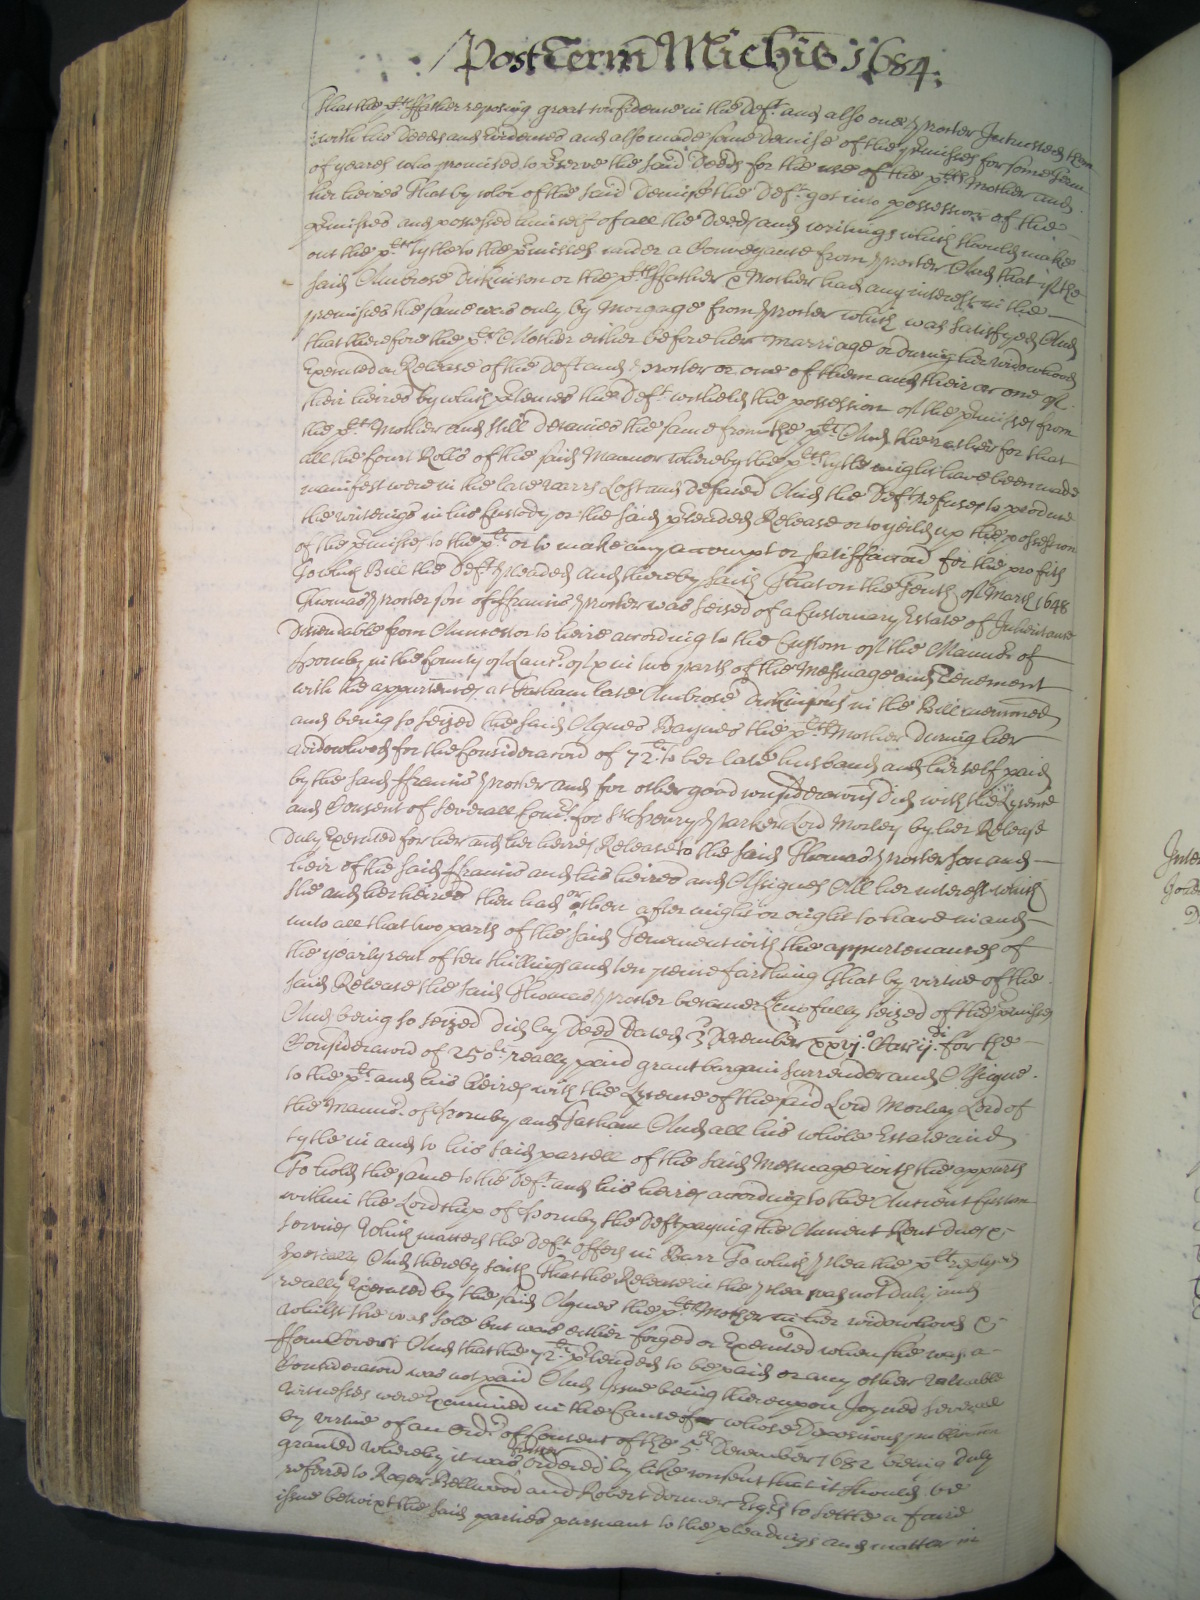 Post Term Michis 1684:
That the plts ffather reposing great confidence in the Deft and also one Procter Intrusted them
with his Deeds and Evidences and also made some Demise of the prmisses for some Term
of yeares who promised to prserve the said Deeds for the use of the plts Mother and
her heires That by color of the said Demise the Deft got into possession of the
prmisses and possessed himself of all the Deeds and writings which should make
out the plts tytle to the prmisses under a Conveyance from Procter And that if the
said Ambrose Dickinson or the plts ffather & Mother had any interest in the
premisses the same was only by Morgage from Procter which was satisfyed And
that therefore the plts Mother either before her marriage or during her widowhood
Executed a Release of the Deft and Procter or one of them and their or one of
their heires by which prtences the Deft witheld the possession of the prmisses from
the plts Mother and still detaines the same from the plt And the rather for that
all the Court Rolls of the said Mannor whereby the plts tytle might have been made
manifest were in the late warrs Lost and defaced And the Deft refuses to produce
the writeings in his Custody or the said prtended Release or to yeild up the possession
of the prmisses to the plt or to make any accompt or satisfaccon for the profitts
To which Bill the Deft pleaded and thereby saith That on the Tenth of March 1648
Thomas Procter son of ffrancis Procter was seised of a Customary Estate of Inheritance
Descendable from Auncestor to heire according to the Custom of the Mannor of
Hornby in the County of Lancr of & in two parts of the Messuage and Tenement
with the appurtences at Tatham late Ambrose Dickinsons in the Bill menconed
and being so seized the said Agnes Baynes the plts Mother during her
widowhood for the Consideracon of 72li to her late husband and herself paid
by the said ffrancis Procter and for other good consideracons Did with the Lycence
and Consent of severall Comrs for Sr Henry Parker Lord Morley by her Release
Duly Executed for her and her heires Release to the said Thomas Procter son and
heir of the said ffrancis and his heires and Assignes All her interest which
she and her heires then had or then after might or ought to have in and
unto all that two parts of the said Tenement with the appurtenances of
the yearly rent of ten shillings and ten pence farthing That by virtue of the
said Release the said Thomas Procter became Lawfully seized of the prmisses
And being so seized did by Deed Dated 3 December xxvjo Car ijdi for the
Consideracon of 250li really paid grant bargain surrender and Assigne
to the plt and his heires with the Lycence of the said Lord Morley Lord of
the Mannor of Hornby and Tatham And all his whole Estate and
tytle in and to his said parcell of the said Messuage with the appurts
To hold the same to the Deft and his heires according to the Antient Custom
within the Lordship of Hornby the Deft paying the Antient Rent Dues &
services Which matters the Deft offers in Barr To which Plea the plt replyed
specially And thereby saith That the Release in the plea was not duly and
really Executed by the said Agnes the plts Mother in her widowhood &
whilst she was sole but was either forged or Executed when she was a
ffem Covert And that the 72li prtended to be paid or any other valuable
Consideracon was not paid And Issue being thereupon Joyned severall
witnesses were Examined in the Cause whose Deposicons
by virtue of an Order of Consent of the 5th December 1682 being duly
granted whereby it was further Ordered by like consent that it should be
referred to Roger Bellwood and Robert Dormer Esqrs to settle a faire
issue betwixt the said parties pursuant to the pleadings and matter in